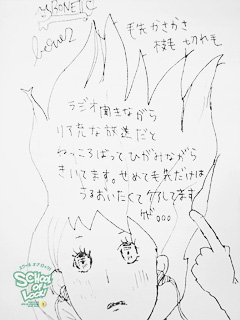 毛先かさかさ
枝毛 切れ毛
ラジオ聞きながら
リア充な放送だと
ねっころばってひがみながら
きいてます。せめて毛先だけは
うるおいたくてケアしてます
が。。。
SCHOOL
OF
LOCK!